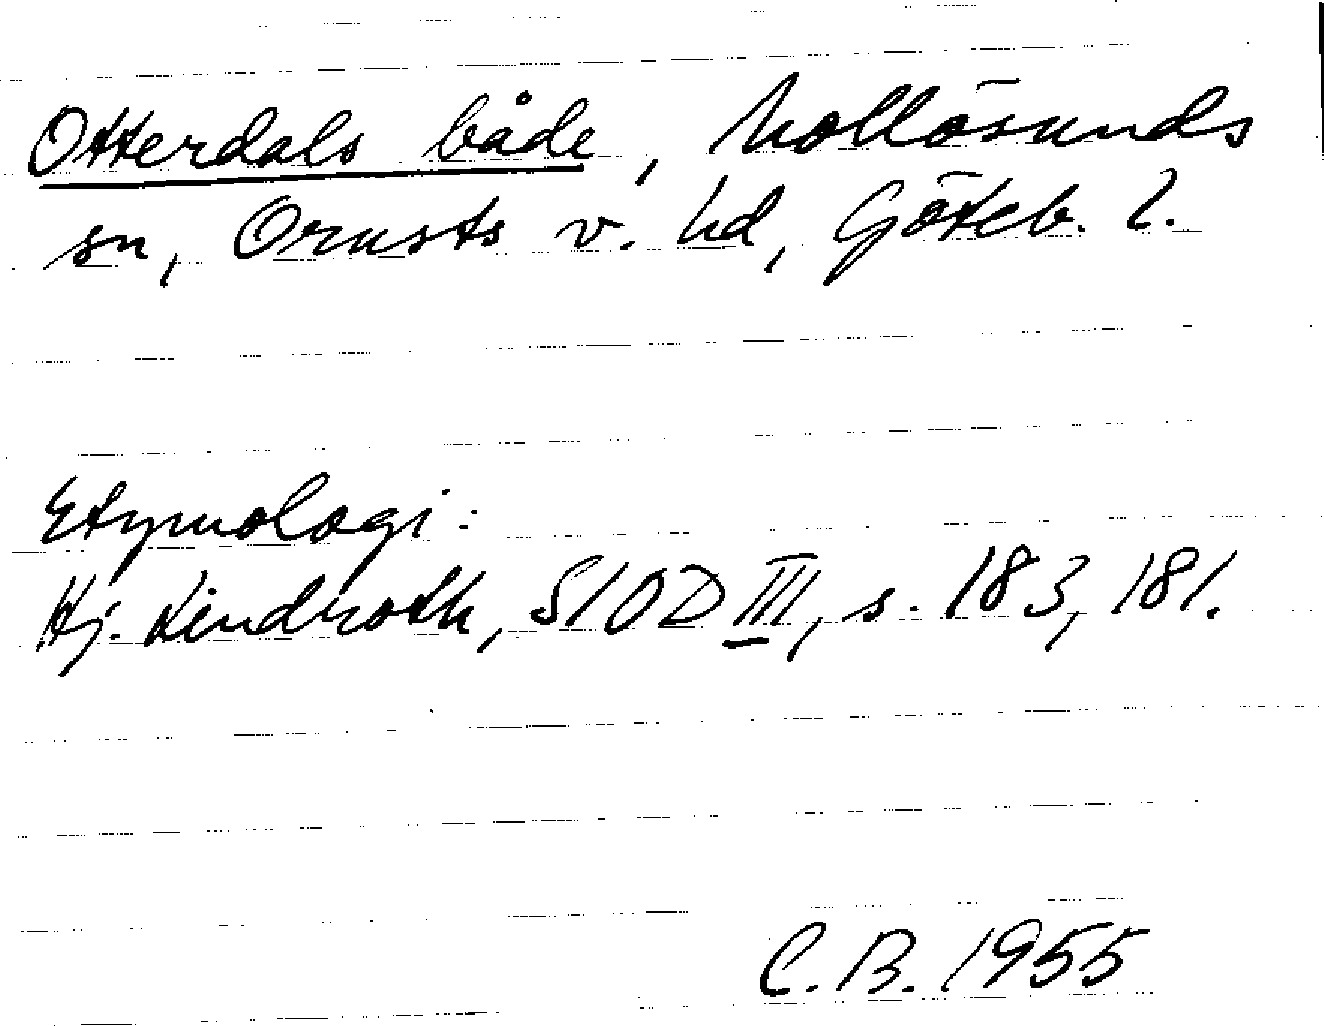 Otterdals både, Mollösunds
sn, Orusts v. hd, Göteb. l.
Etymologi:
Hj. Lindroth, SIOD III, s. 183, 181.
C.B. 1955